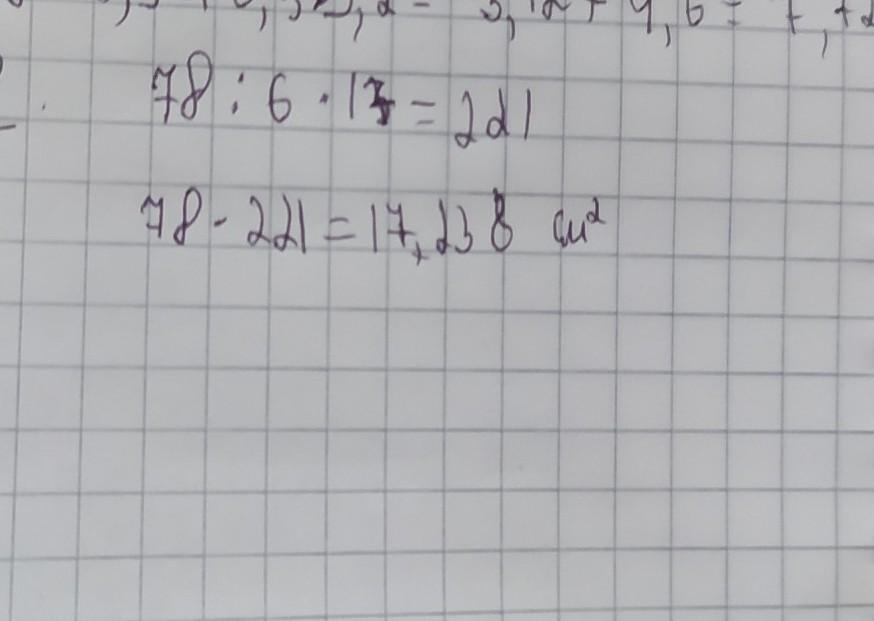 78 : 6 · 17 = 221
78 · 221 = 17,238 см²